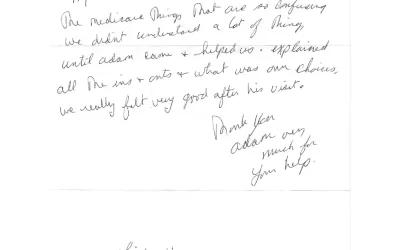 The medicare Things That are so confusing
we didn't understand a lot of Thing,
until adam came + helped us. explained
all The ins + outs + what was our choices,
we really felt very good after his visit.
Thank you
adam very
much for
your help.